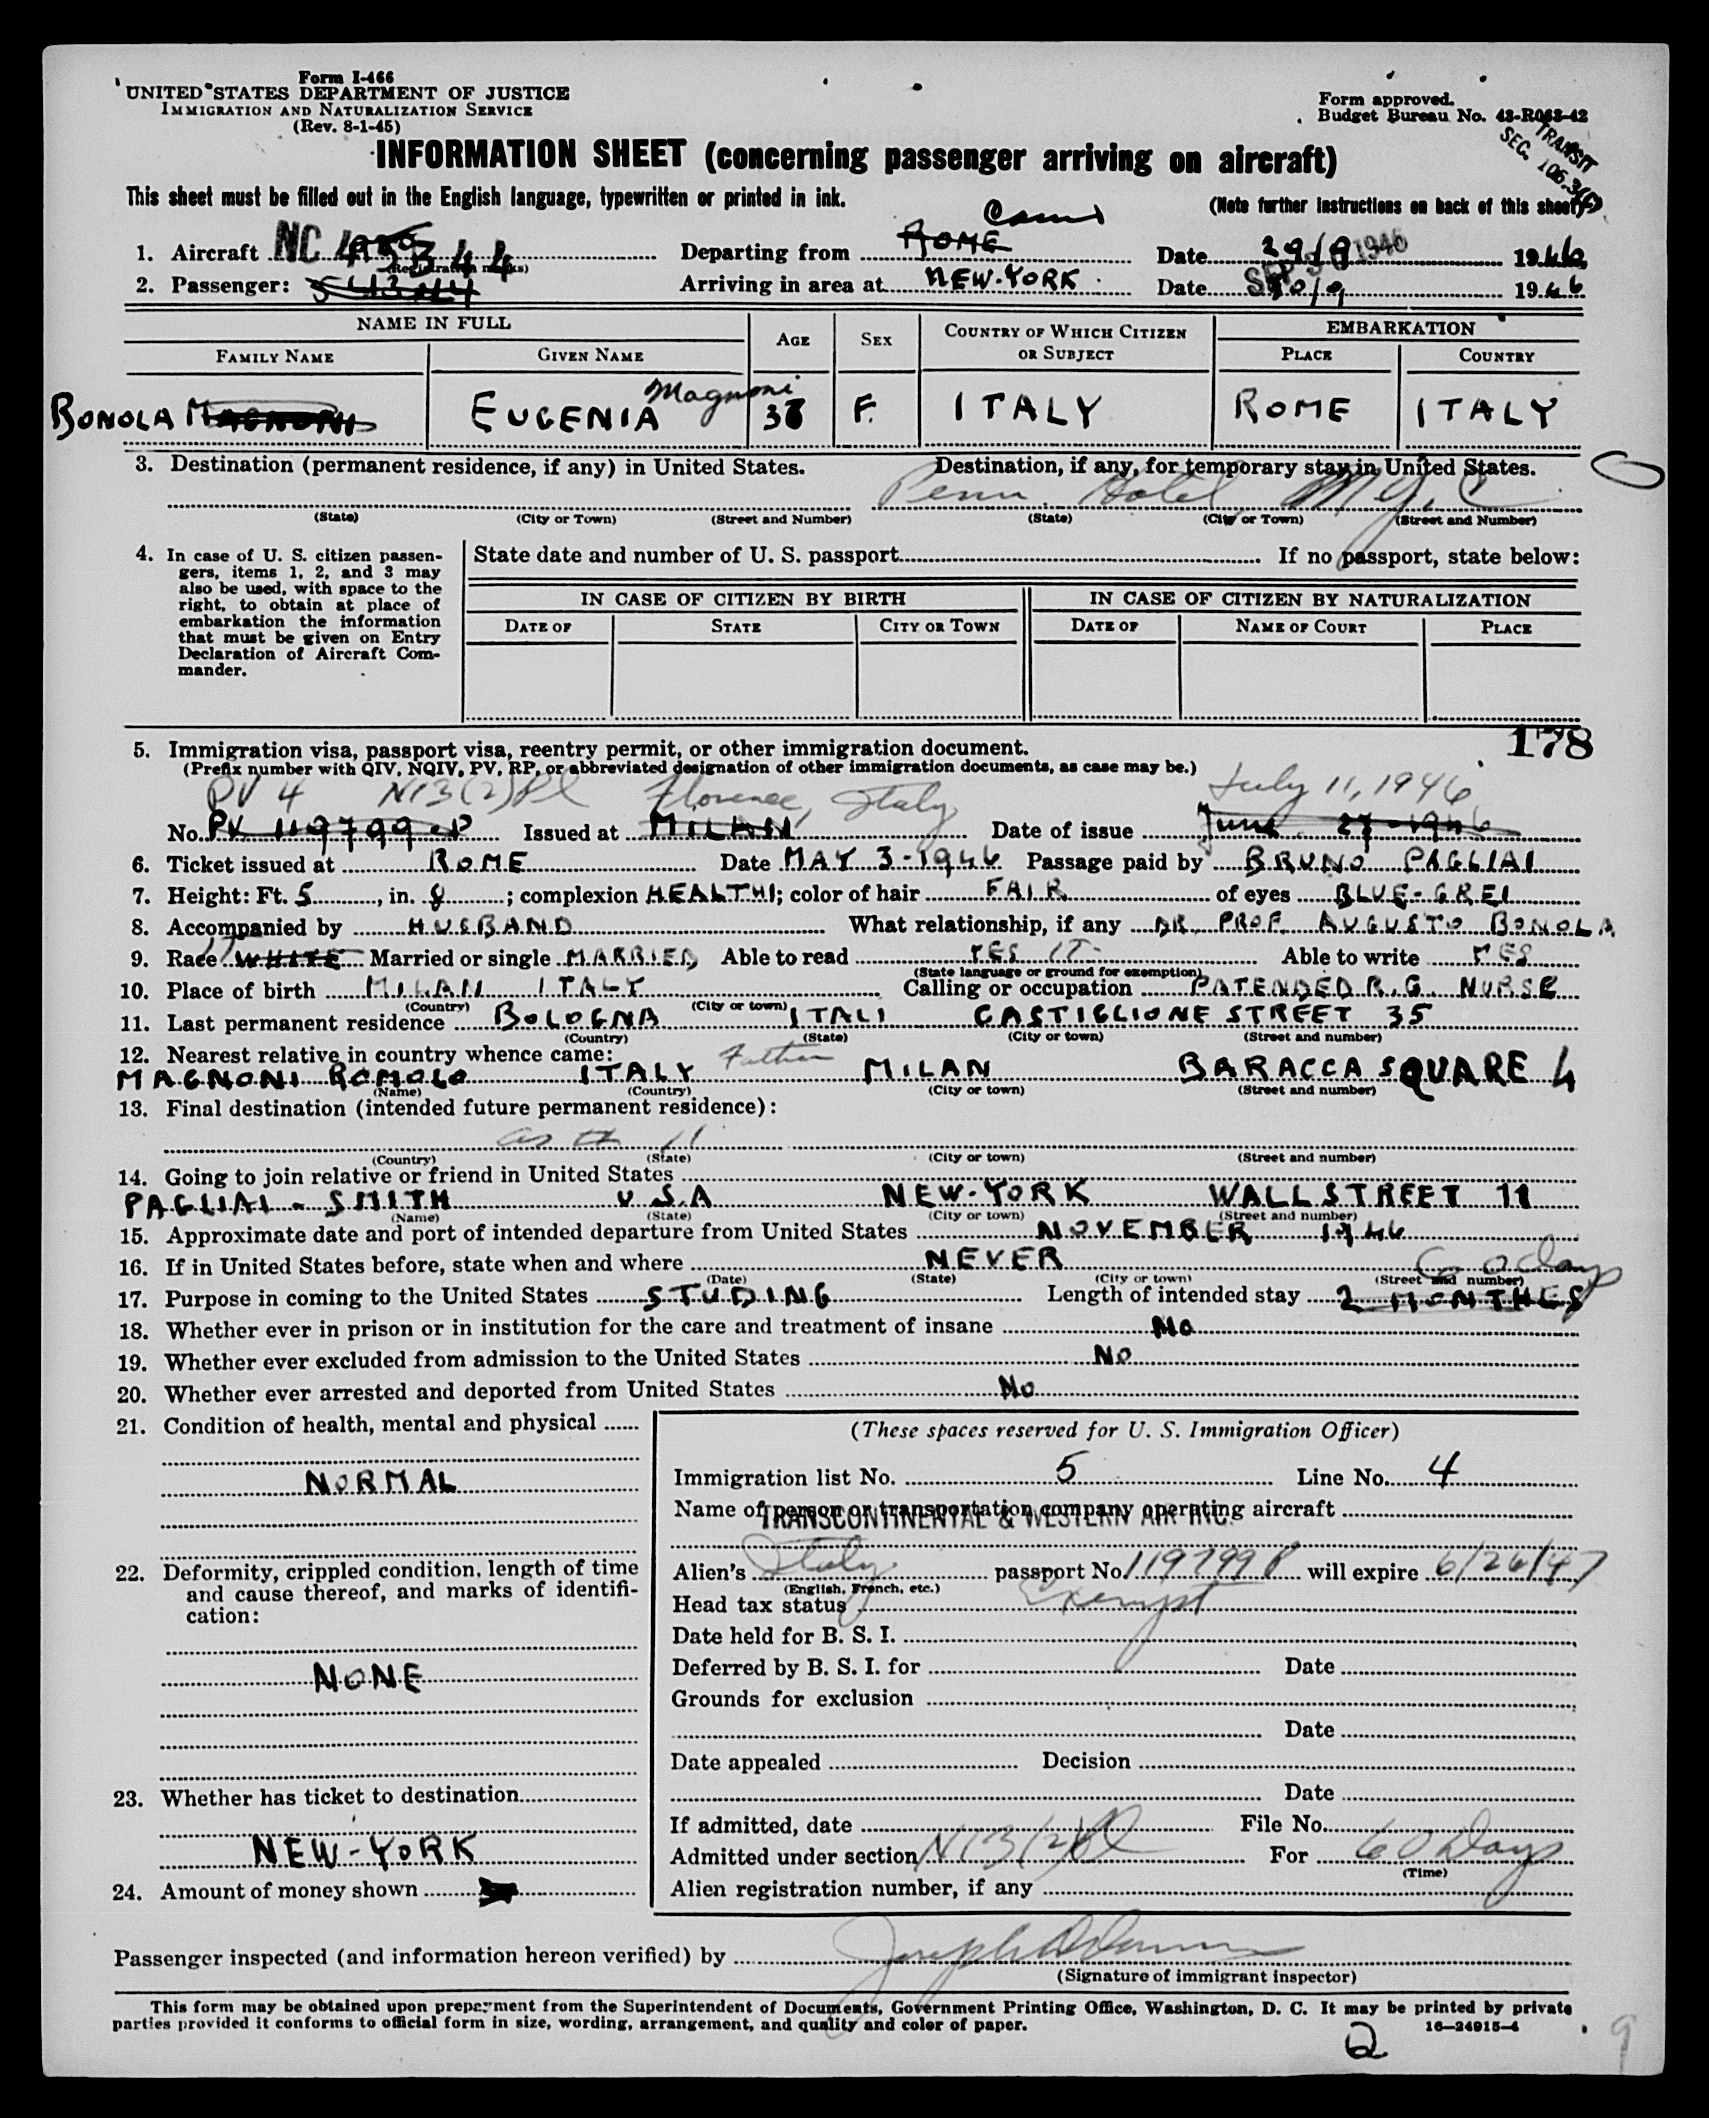 Form I-466
UNITED STATES DEPARTMENT OF JUSTICE
IMMIGRATION AND NATURALIZATION SERVICE
(Rev. 8-1-45)
Form approved.
Budget Bureau No. 43-R063-42
TRANSIT
SEC. 106.3(
INFORMATION SHEET (concerning passenger arriving on aircraft)
This sheet must be filled out in the English language, typewritten or printed in ink.
(Note further instructions on back of this sheet)
1. Aircraft NC 44 (Registration marks) Departing from ROME Date 29/9 1946
2. Passenger: Arriving in area at NEW-YORK Date SEP 30 1946 30/9 1946
NAME IN FULL AGE SEX COUNTRY OF WHICH CITIZEN OR SUBJECT EMBARKATION
FAMILY NAME GIVEN NAME PLACE COUNTRY
BONOLA MAGNONI EUGENIA Magnoni F. ITALY ROME ITALY
3. Destination (permanent residence, if any) in United States. Destination, if any, for temporary stay in United States.
Penn. Hotel N.Y.C
(State) (City or Town) (Street and Number) (State) (City or Town) (Street and Number)
4. In case of U. S. citizen passengers, items 1, 2, and 3 may also be used, with space to the right, to obtain at place of embarkation the information that must be given on Entry Declaration of Aircraft Commander.
State date and number of U. S. passport If no passport, state below:
IN CASE OF CITIZEN BY BIRTH IN CASE OF CITIZEN BY NATURALIZATION
DATE OF STATE CITY OR TOWN DATE OF NAME OF COURT PLACE
178
5. Immigration visa, passport visa, reentry permit, or other immigration document.
(Prefix number with QIV, NQIV, PV, RP, or abbreviated designation of other immigration documents, as case may be.)
PV 4 N13(2)Pl Florence, Italy July 11, 1946
No. PV 119799-P Issued at MILAN Date of issue June 27-1946
6. Ticket issued at ROME Date MAY 3-1946 Passage paid by BRUNO PAGLIAI
7. Height: Ft. 5, in. 8; complexion HEALTHI; color of hair FAIR of eyes BLUE-GREI
8. Accompanied by HUSBAND What relationship, if any DR. PROF. AUGUSTO BONOLA
9. Race IT WHITE Married or single MARRIED Able to read YES IT- Able to write YES
(State language or ground for exemption)
10. Place of birth MILAN ITALY Calling or occupation PATENDED R.G. NURSE
(Country) (City or town)
11. Last permanent residence BOLOGNA ITALI CASTIGLIONE STREET 35
(Country) (State) (City or town) (Street and number)
12. Nearest relative in country whence came: Father
MAGNONI ROMOLO ITALY MILAN BARACCA SQUARE 4
(Name) (Country) (City or town) (Street and number)
13. Final destination (intended future permanent residence):
as # 11
(Country) (State) (City or town) (Street and number)
14. Going to join relative or friend in United States
PAGLIAI - SMITH U.S.A NEW-YORK WALL STREET 11
(Name) (State) (City or town) (Street and number)
15. Approximate date and port of intended departure from United States NOVEMBER 1946
16. If in United States before, state when and where NEVER
(Date) (State) (City or town) (Street and number)
60 days
17. Purpose in coming to the United States STUDING Length of intended stay 2 MONTHES
18. Whether ever in prison or in institution for the care and treatment of insane No
19. Whether ever excluded from admission to the United States No
20. Whether ever arrested and deported from United States No
21. Condition of health, mental and physical
NORMAL
22. Deformity, crippled condition, length of time and cause thereof, and marks of identification:
NONE
23. Whether has ticket to destination
NEW-YORK
24. Amount of money shown
(These spaces reserved for U. S. Immigration Officer)
Immigration list No. 5 Line No. 4
Name of person or transportation company operating aircraft
TRANSCONTINENTAL & WESTERN AIR INC.
Alien's Italy passport No. 119799 P will expire 6/26/47
(English, French, etc.)
Head tax status Exempt
Date held for B. S. I.
Deferred by B. S. I. for Date
Grounds for exclusion
Date
Date appealed Decision
Date
If admitted, date File No.
Admitted under section N13(2)Pl For 60 Days
(Time)
Alien registration number, if any
Passenger inspected (and information hereon verified) by
(Signature of immigrant inspector)
This form may be obtained upon prepayment from the Superintendent of Documents, Government Printing Office, Washington, D. C. It may be printed by private
parties provided it conforms to official form in size, wording, arrangement, and quality and color of paper.
16—24915-4
2
9